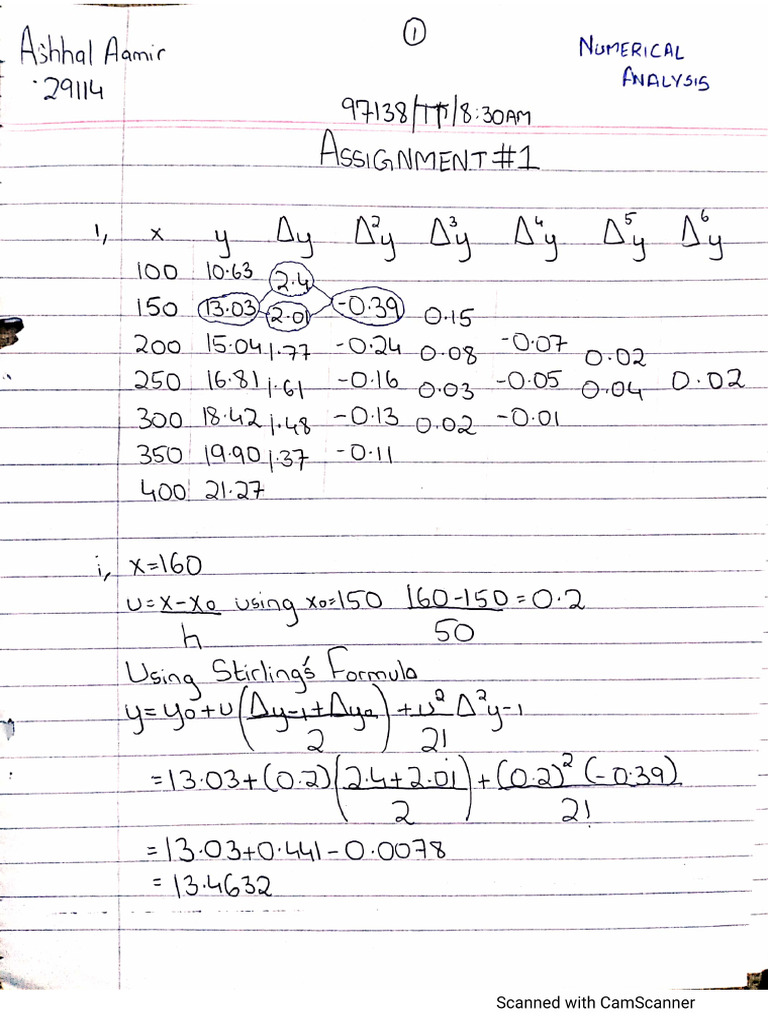 ①
Ashhal Aamir
29114
NUMERICAL
ANALYSIS
97138/TT/8:30AM
ASSIGNMENT #1
1, x y Δy Δ²y Δ³y Δ⁴y Δ⁵y Δ⁶y
100 10.63 2.4
150 13.03 2.01 -0.39 0.15
200 15.04 1.77 -0.24 0.08 -0.07 0.02
250 16.81 1.61 -0.16 0.03 -0.05 0.04 0.02
300 18.42 1.48 -0.13 0.02 -0.01
350 19.90 1.37 -0.11
400 21.27
i, x=160
u=x-x0/h using x0=150 160-150/50=0.2
Using Stirling's Formula
y=y0+u(Δy-1+Δy0/2)+u²/2! Δ²y-1
=13.03+(0.2)(2.4+2.01/2)+(0.2)²(-0.39)/2!
=13.03+0.441-0.0078
=13.4632
Scanned with CamScanner